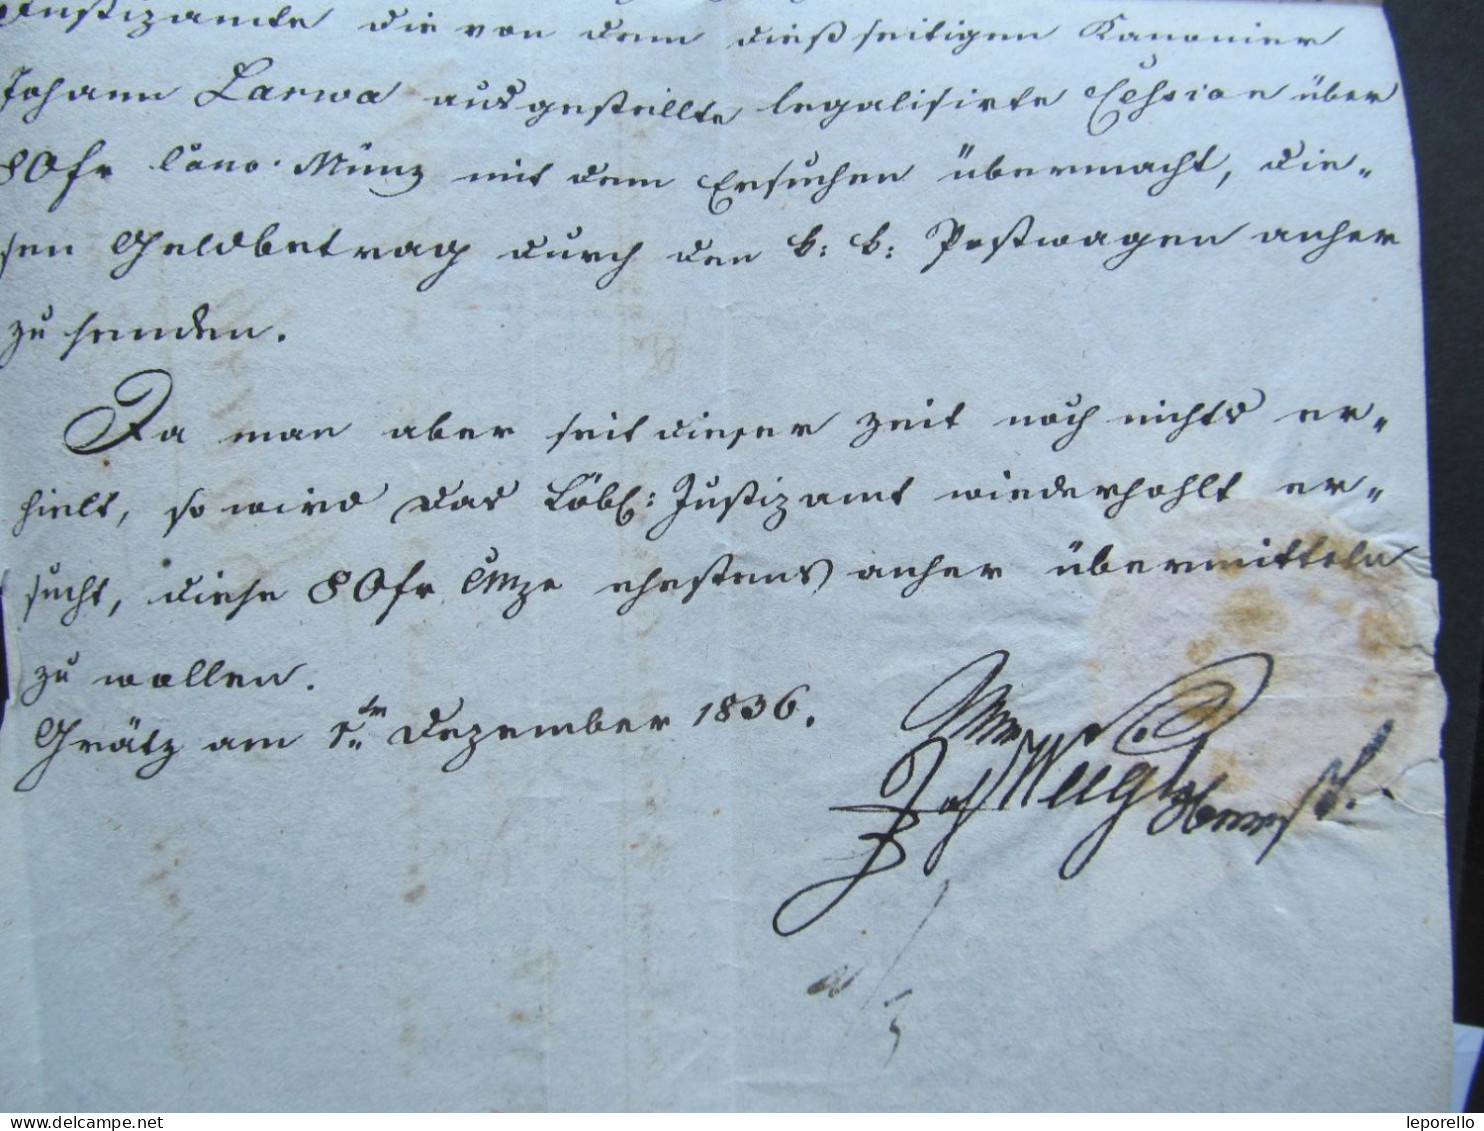 Justizamte die von dem dießseitigen Kanonier
Johann Larwa ausgestellte legalisirte Cession über
80 fr Conv. Münz mit dem Ersuchen übermacht, die„
sen Geldbetrag durch den k: k: Postwagen anher
zu senden.
Da man aber seit dieser Zeit noch nichts er„
hielt, so wird das Löbl: Justizamt wiederhohlt er„
sucht, diese 80 fr CMze ehestens anher übermitteln
zu wollen.
Grätz am 5tn Dezember 1836.
leporello